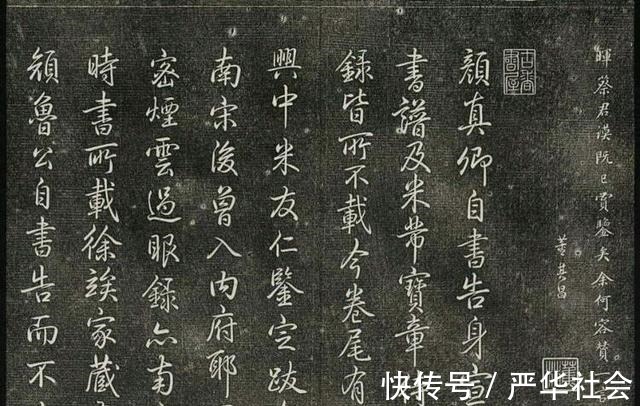 暉蔡君謨既已賞鑒矣余何容贊
董其昌
顏真卿自書告身宣
書譜及米芾寶章待
錄皆所不載今卷尾有
興中米友仁鑒定跋
南宋後曾入內府耶
密煙雲過眼錄亦南
時書所載徐竢家藏
顏魯公自書告而不
快传号 / 严华社会